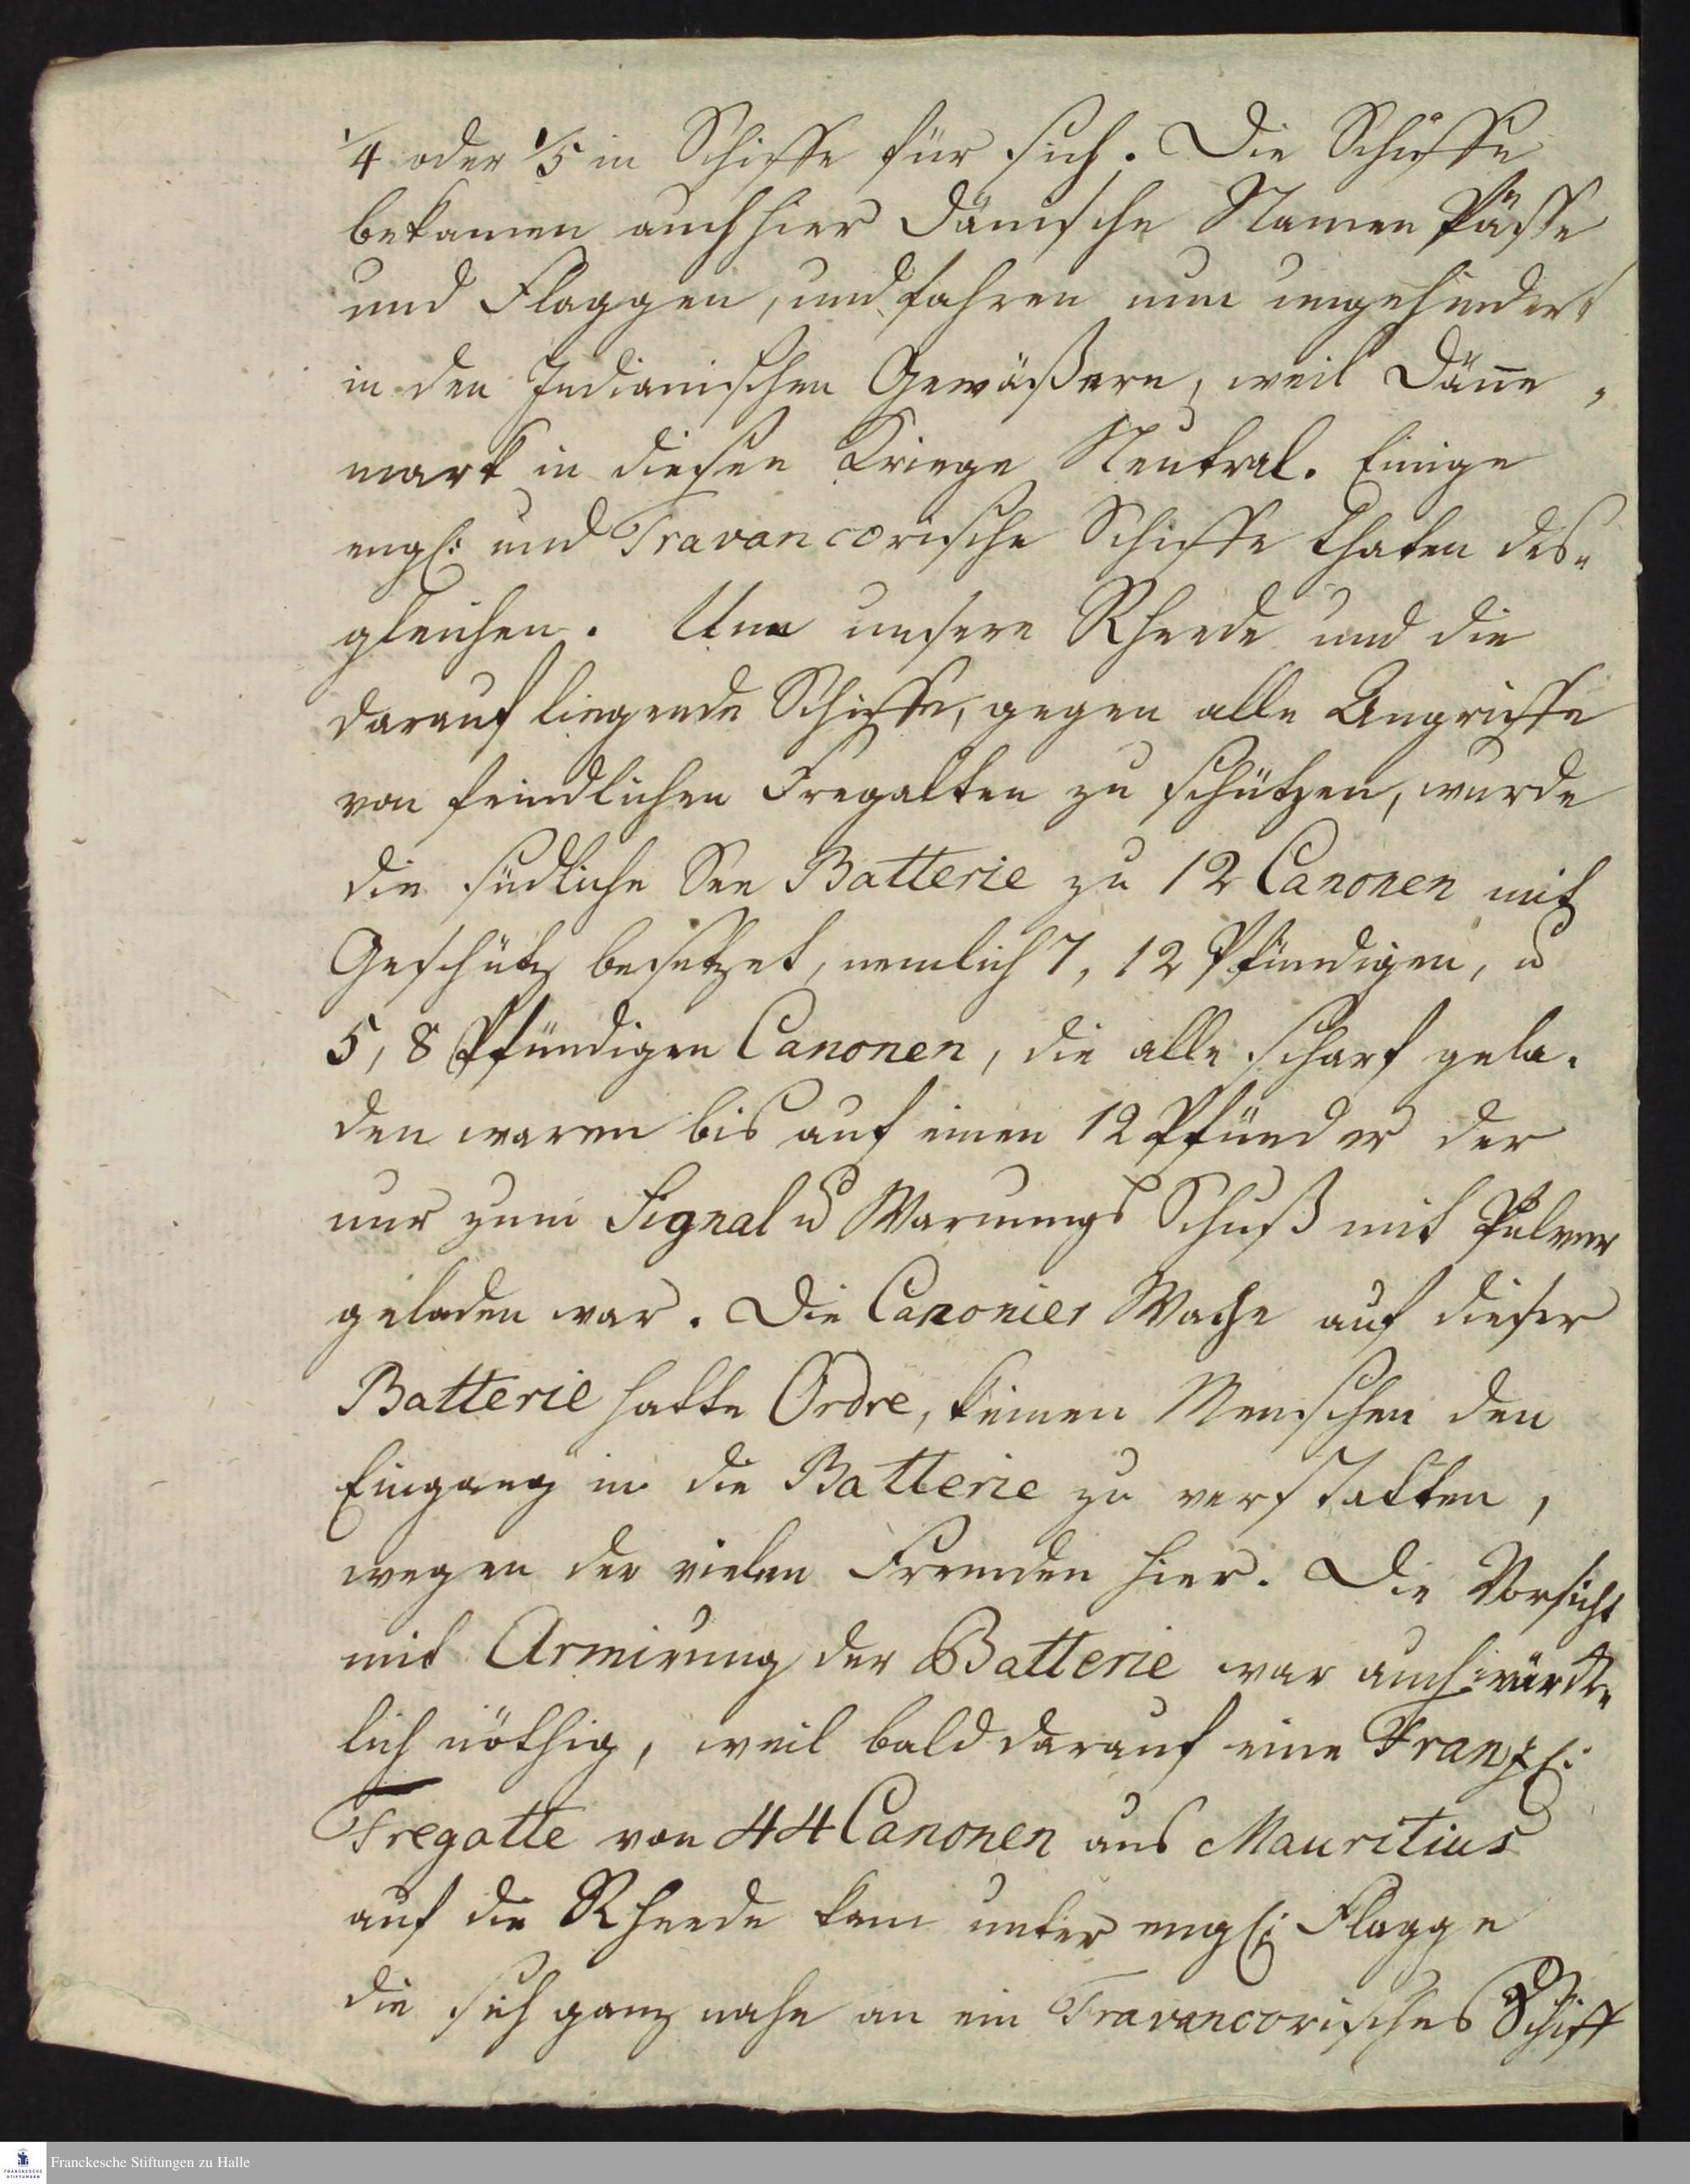 1/4 oder 1/5 in Schiffe für sich. Die Schiffe
bekamen auch hier Dänische Namen Päsße
und Flaggen, und fahren nun ungehindert
in den Indianischen Gewäßern, weil Däne„
mark in diesen Kriege Neutral. Einige
engl: und Travancorische Schiffe thaten des„
gleichen. Um unsere Rheede und die
darauf liegende Schiffe, gegen alle Angriffe
von feindlichen Fregatten zu schützen, wurde
die südliche See Batterie zu 12 Canonen mit
Geschütz besetzet, nemlich 7, 12 Pfündigen, u
5, 8 Pfündigen Canonen, die alle scharf gela„
den waren bis auf einen 12 Pfünder der
nur zum Signal u Warnungs Schuß mit Pulver
geladen war. Die Canonier Wache auf dieser
Batterie hatte Ordre, keinen Menschen den
Eingang in die Batterie zu verstatten,
wegen der vielen Fremden hier. Die Vorsicht
mit Armirung der Batterie war auch würck„
lich nöthig, weil bald darauf eine Franzs:
Fregatte von 44 Canonen aus Mauritius
auf die Rheede kam unter engls: Flagge
die sich ganz nahe an ein Travancorisches Schiff
Franckesche Stiftungen zu Halle